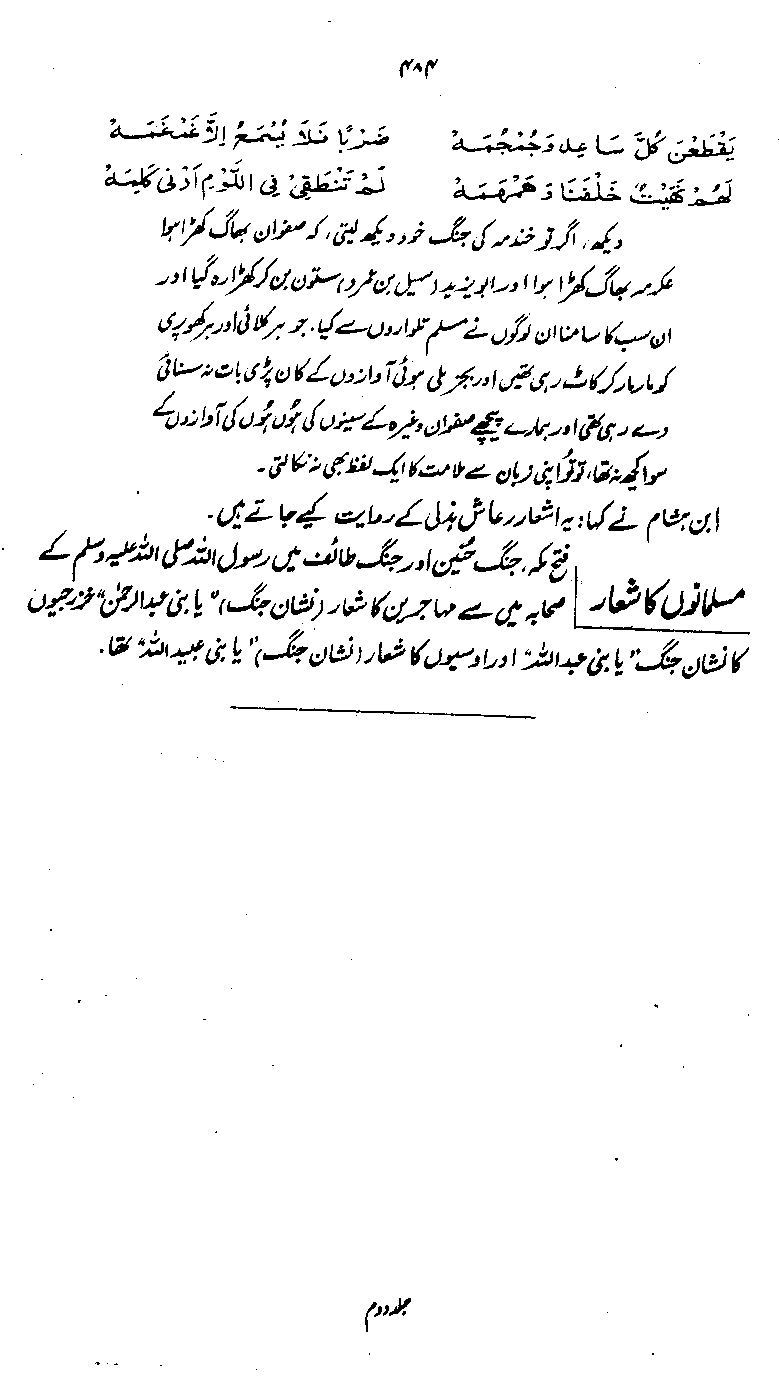 ۴۸۴
يَقْطَعْنَ كُلَّ سَاعِدٍ وَجُمْجُمَهْ ضَرْبًا فَلَا يُسْمَعُ اِلَّا غَمْغَمَهْ
لَهُمْ نَهِيْتٌ خَلْفَنَا وَهَمْهَمَهْ لَمْ تَنْطَقِيْ فِي اللَّوْمِ اَدْنٰى كَلِمَهْ
دیکھ، اگر تو خندمہ کی جنگ خود دیکھ لیتی، کہ صفوان بھاگ کھڑا ہوا
عکرمہ بھاگ کھڑا ہوا اور ابو یزید (سہیل بن عمرو) ستون بن کر کھڑا رہ گیا اور
ان سب کا سامنا ان لوگوں نے مسلم تلواروں سے کیا، جو ہر کلائی اور ہر کھوپری
کو مار مار کر کاٹ رہی تھیں اور بجز ملی ہوئی آوازوں کے کان پڑی بات نہ سنائی
دے رہی تھی اور ہمارے پیچھے صفوان وغیرہ کے سینوں کی ہُوں ہُوں کی آوازوں کے
سوا کچھ نہ تھا، تو تُو اپنی زبان سے ملامت کا ایک لفظ بھی نہ نکالتی۔
ابن ہشام نے کہا: یہ اشعار رعاش ہذلی کے روایت کیے جاتے ہیں۔
فتح مکہ، جنگ حُنین اور جنگ طائف میں رسول اللہ صلی اللہ علیہ وسلم کے
مسلمانوں کا شعار صحابہ میں سے مہاجرین کا شعار (نشان جنگ) "یا بنی عبدالرحمٰن" خزرجیوں
کا نشان جنگ "یا بنی عبداللہ" اور اوسیوں کا شعار (نشان جنگ) "یا بنی عبیداللہ" تھا۔
جلد دوم